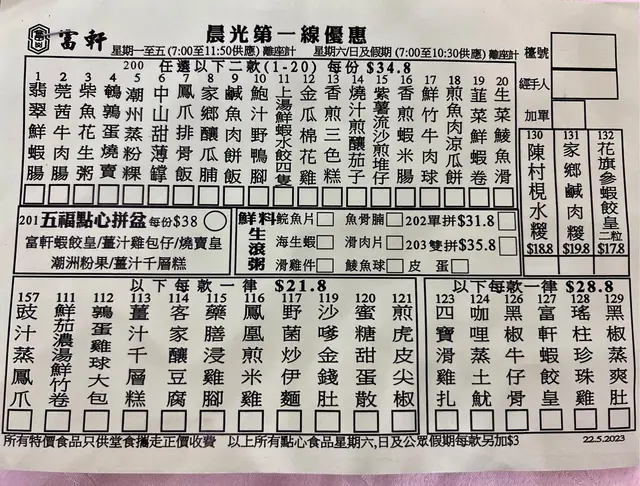 富軒
晨光第一線優惠
星期一至五(7:00至11:50供應)離座計 星期六/日及假期(7:00至10:30供應)離座計
檯號
經手人
加單
200 任選以下二款(1-20)每份$34.8
1 翡翠鮮蝦腸
2 莞茜牛肉腸
3 柴魚花生粥
4 鵪鶉蛋燒賣
5 潮州蒸粉粿
6 中山甜薄罉
7 鳳爪排骨飯
8 家鄉釀瓜脯
9 鹹魚肉餅飯
10 鮑汁野鴨腳
11 上湯鮮蝦水餃四隻
12 金瓜棉花雞
13 香煎三色糕
14 燒汁煎釀茄子
15 紫薯流沙煎堆仔
16 香煎蝦米腸
17 鮮竹牛肉球
18 煎魚肉涼瓜餅
19 韮菜鮮蝦卷
20 生菜鯪魚滑
130 陳村梘水糉 $18.8
131 家鄉鹹肉糉 $19.8
132 花旗參蝦餃皇二粒 $17.8
201五福點心拼盆 每份$38
富軒蝦餃皇/薑汁雞包仔/燒賣皇
潮洲粉果/薑汁千層糕
鮮料生滾粥
鯇魚片 魚骨腩 202單拼$31.8
海生蝦 滑肉片 203雙拼$35.8
滑雞件 鯪魚球 皮蛋
以下每款一律$21.8
157 豉汁蒸鳳爪
111 鮮茄濃湯鮮竹卷
112 鵪蛋雞球大包
113 薑汁千層糕
114 客家釀豆腐
115 藥膳浸雞腳
116 鳳凰煎米雞
117 野菌炒伊麵
119 沙嗲金錢肚
120 蜜糖甜蛋散
121 煎虎皮尖椒
以下每款一律$28.8
123 四寶滑雞扎
124 咖哩蒸土魷
126 黑椒牛仔骨
127 富軒蝦餃皇
128 瑤柱珍珠雞
129 黑椒蒸爽肚
所有特價食品只供堂食攜走正價收費 以上所有點心食品星期六,日及公眾假期每款另加$3
22.5.2023